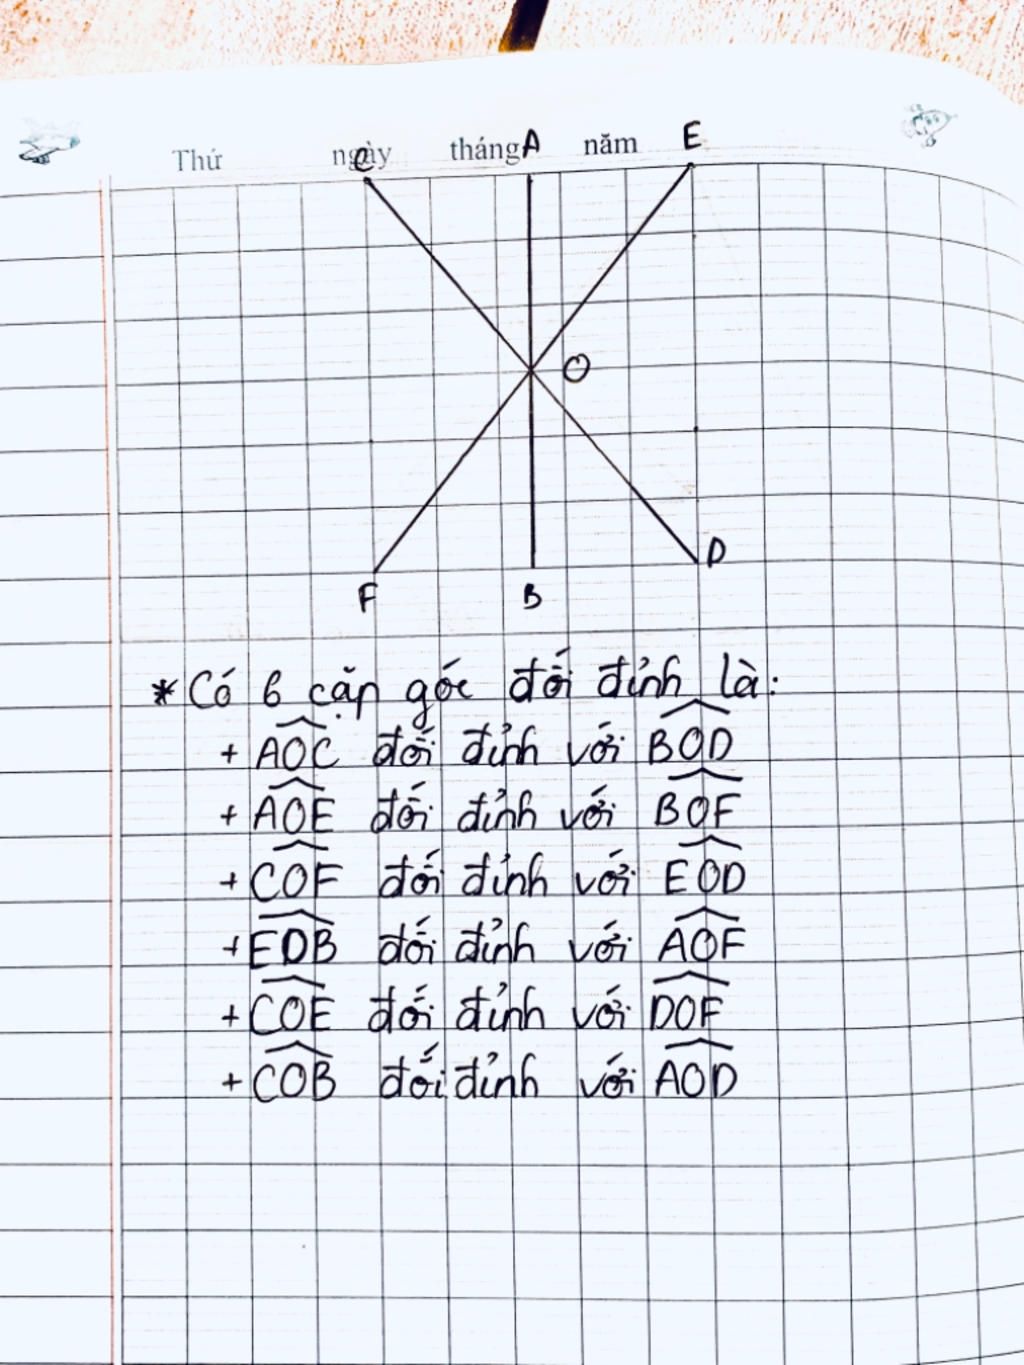 Thứ ngày tháng năm
C A E
O
F B D
* Có 6 cặp góc đối đỉnh là:
+ AOC đối đỉnh với BOD
+ AOE đối đỉnh với BOF
+ COF đối đỉnh với EOD
+ EOB đối đỉnh với AOF
+ COE đối đỉnh với DOF
+ COB đối đỉnh với AOD